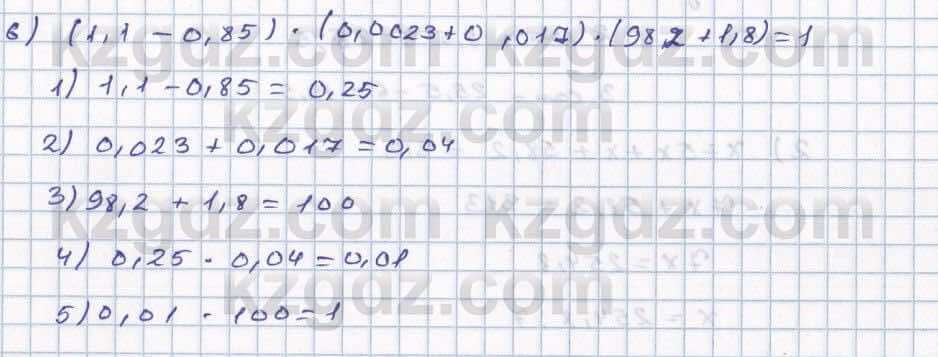 в) (1,1 - 0,85) · (0,0023+0,017) · (98,2 +1,8) = 1
kzgdz.com kzgdz.com
1) 1,1 - 0,85 = 0,25
kzgdz.com
2) 0,023 + 0,017 = 0,04
3) 98,2 + 1,8 = 100
kzgdz.com kzgdz.com
4) 0,25 · 0,04 = 0,01
kzgdz.com
5) 0,01 · 100 = 1